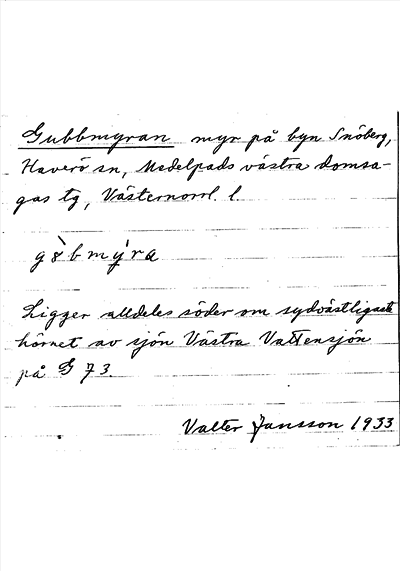 Gubbmyran myr på byn Snöberg,
Haverö sn, Medelpads västra domsa-
gas tg, Västernorrl. l.
gȣ̀bmýra
Ligger alldeles söder om sydvästligaste
hörnet av sjön Västra Vattensjön
på G 73
Valter Jansson 1933